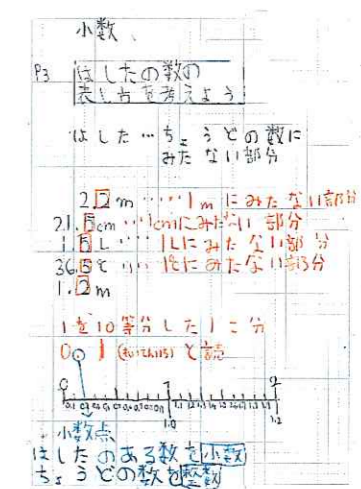 小数
P3 はしたの数の
表し方を考えよう
はした…ちょうどの数に
みたない部分
2.2m……1mにみたない部分
21.5cm…1cmにみたない部分
1.5L…1Lにみたない部分
36.5℃…1℃にみたない部分
1.2m
1を10等分した1こ分
0.1(れいてんいち)と読
0 1 2
0.1 0.2
1.0
小数点
はしたのある数を小数
ちょうどの数を整数